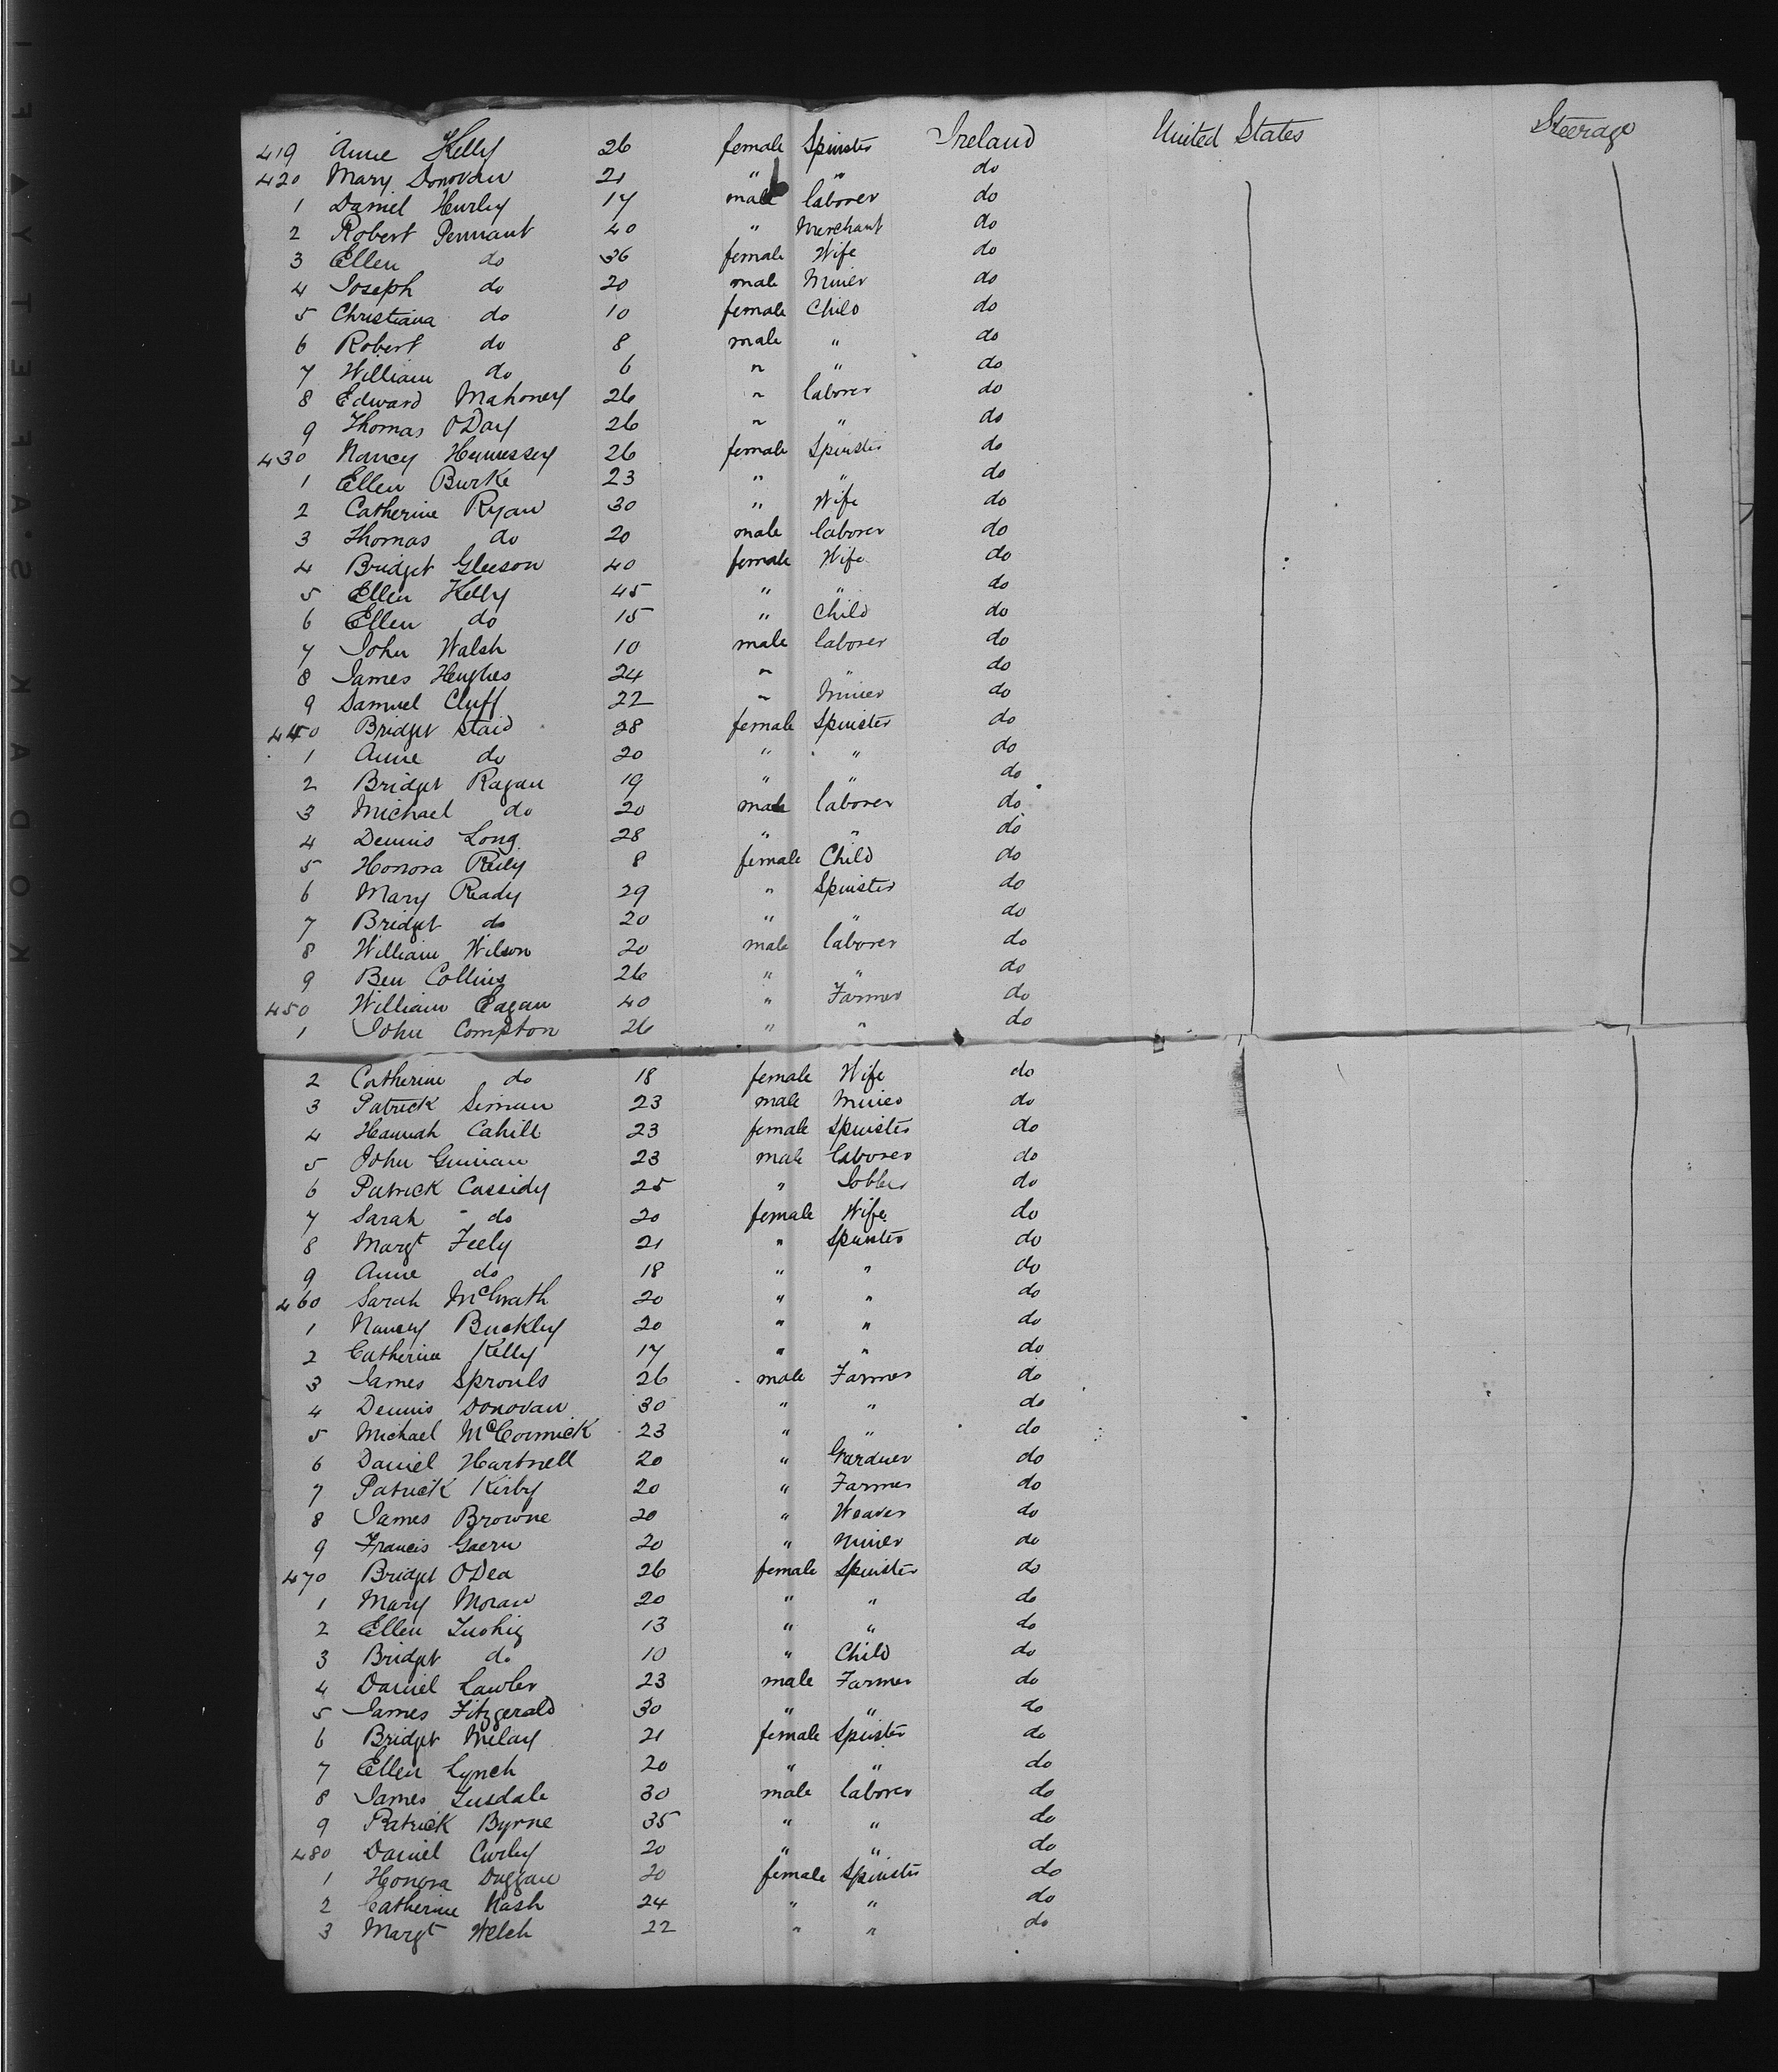 419 Anne Kelly 26 female Spinster Ireland United States Steerage
420 Mary Donovan 21 " " do
1 Daniel Hurley 17 male laborer do
2 Robert Pennant 40 " Merchant do
3 Ellen do 36 female Wife do
4 Joseph do 20 male Miner do
5 Christiana do 10 female Child do
6 Robert do 8 male " do
7 William do 6 " " do
8 Edward Mahoney 26 " laborer do
9 Thomas ODay 26 " " do
430 Nancy Hennessey 26 female Spinster do
1 Ellen Burke 23 " " do
2 Catherine Ryan 30 " Wife do
3 Thomas do 20 male laborer do
4 Bridget Gleeson 40 female Wife do
5 Ellen Kelly 45 " " do
6 Ellen do 15 " Child do
7 John Walsh 10 male laborer do
8 James Hughes 24 " " do
9 Samuel Cluff 22 " Miner do
440 Bridget Staid 28 female Spinster do
1 Anne do 20 " " do
2 Bridget Ragan 19 " " do
3 Michael do 20 male laborer do
4 Dennis Long 28 " " do
5 Honora Reily 8 female Child do
6 Mary Ready 29 " Spinster do
7 Bridget do 20 " " do
8 William Wilson 20 male laborer do
9 Ben Collins 26 " " do
450 William Eagan 40 " Farmer do
1 John Compton 26 " " do
2 Catherine do 18 female Wife do
3 Patrick 23 male Miner do
4 Hannah Cahill 23 female Spinster do
5 John Guinan 23 male laborer do
6 Patrick Cassidy 25 " Jobber do
7 Sarah do 20 female Wife do
8 Margt Feely 21 " Spinster do
9 Anne do 18 " " do
460 Sarah McGrath 20 " " do
1 Nancy Buckley 20 " " do
2 Catherine Kelly 17 " " do
3 James Sprouls 26 male Farmer do
4 Dennis Donovan 30 " " do
5 Michael McCormick 23 " " do
6 Daniel Hartnell 20 " Gardner do
7 Patrick Kirby 20 " Farmer do
8 James Browne 20 " Weaver do
9 Francis 20 " Miner do
470 Bridget ODea 26 female Spinster do
1 Mary Moran 20 " " do
2 Ellen 13 " " do
3 Bridget do 10 " Child do
4 Daniel Lawler 23 male Farmer do
5 James Fitzgerald 30 " " do
6 Bridget 21 female Spinster do
7 Ellen Lynch 20 " " do
8 James 30 male laborer do
9 Patrick Byrne 35 " " do
480 Daniel Curley 20 " " do
1 Honora Duggan 20 female Spinster do
2 Catherine Nash 24 " " do
3 Margt Welch 22 " " do
KODAK SAFETY